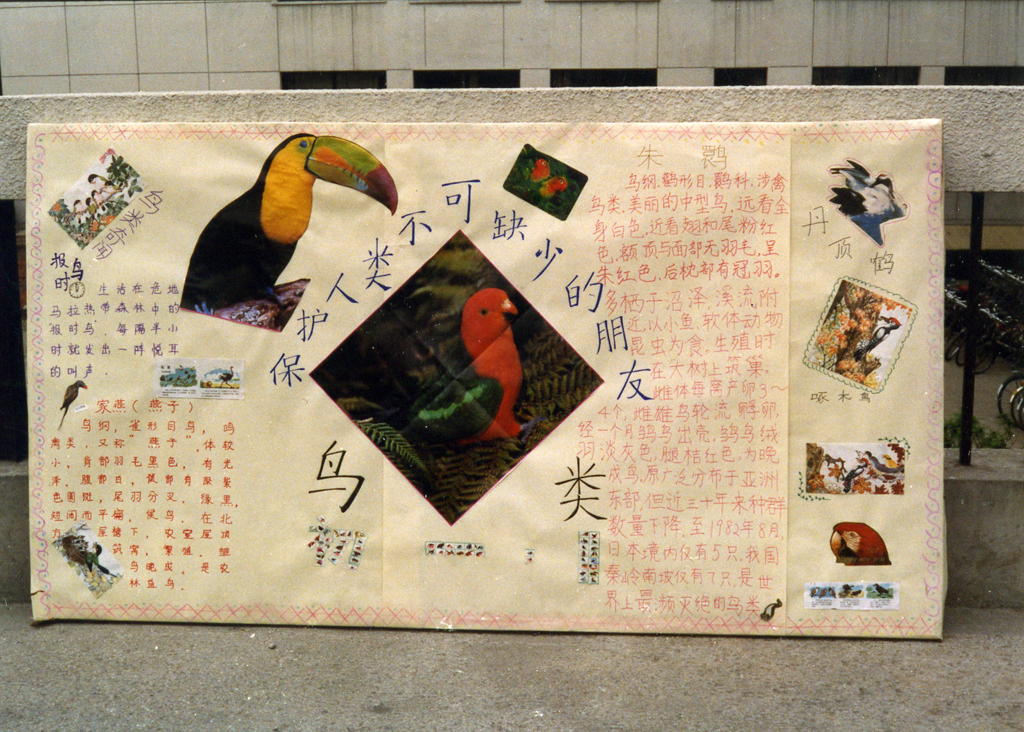 保护人类不可缺少的朋友
鸟类
鸟类奇闻
报时鸟
生活在危地
马拉热带森林中的
报时鸟，每隔半小
时就发出一阵悦耳
的叫声.
家燕（燕子）
鸟纲，雀形目鸟，鸣
禽类，又称"燕子"体较
小，背部羽毛黑色，有光
泽，腹部白，
色围斑，尾羽分叉，缘黑，
短阔而平扁，候鸟，在北
方 屋檐下，农室屋顶
筑窝，繁殖，雏
鸟晚成，是农
林益鸟.
朱鹮
鸟纲.鹳形目.鹮科.涉禽
鸟类.美丽的中型鸟,远看全
身白色,近看翅和尾粉红
色,额顶与面部无羽毛,呈
朱红色,后枕部有冠羽。
多栖于沼泽,溪流,附
近,以小鱼、软体动物
昆虫为食,生殖时
在大树上筑巢,
雌体每窝产卵3～
4个,雌雄鸟轮流孵卵,
经一个月鹮鸟出壳,鹮鸟绒
羽淡灰色,腿桔红色,为晚
成鸟,原广泛分布于亚洲
东部,但近三十年来种群
数量下降,至1982年8月,
日本境内仅有5只,我国
秦岭南坡仅有7只,是世
界上最濒灭绝的鸟类
丹顶鹤
啄木鸟